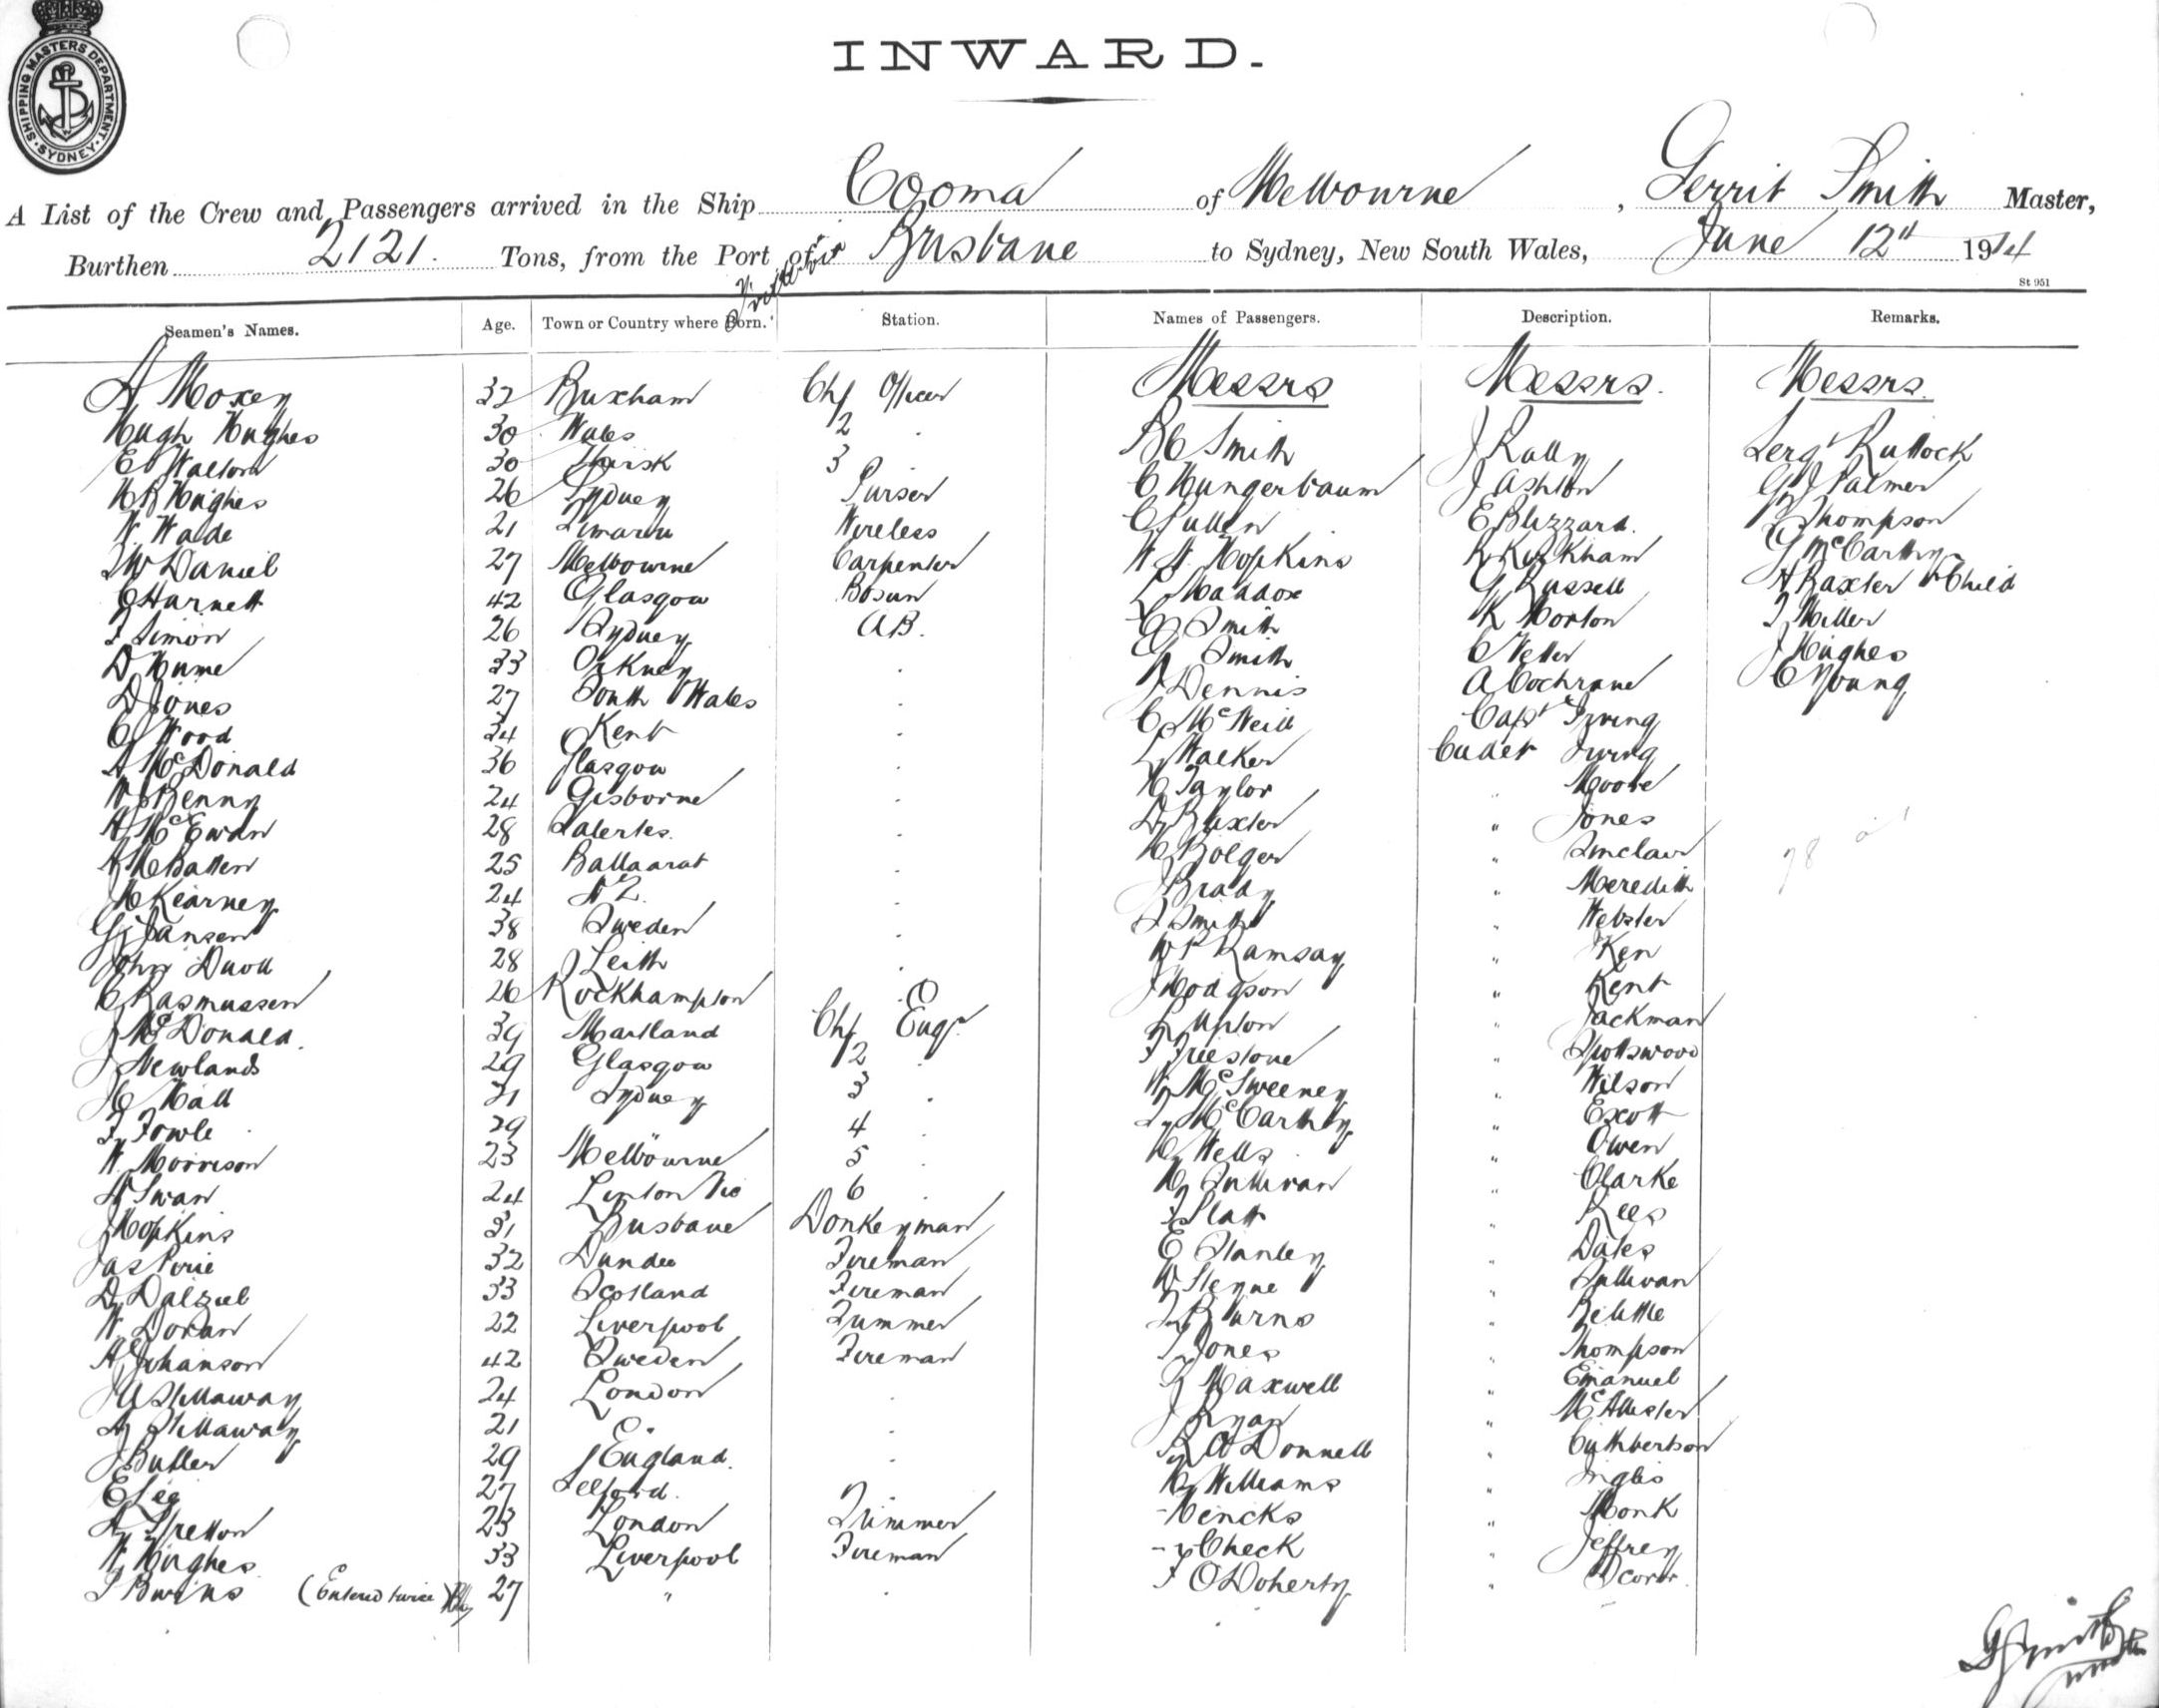 SHIPPING MASTERS DEPARTMENT. SYDNEY
INWARD.
A List of the Crew and Passengers arrived in the Ship Cooma of Melbourne, Gerrit Smith Master,
Burthen 2121. Tons, from the Port of Brisbane to Sydney, New South Wales, June 12th 1914
St 951
Seamen's Names. Age. Town or Country where Born. Station. Names of Passengers. Description. Remarks.
A Moxey 32 Bruxham Chf Officer Messrs Messrs. Messrs.
Hugh Hughes 30 Wales 2 " B C Smith J Rally Sergt Ruttock
E Walton 30 Thirsk 3 C Hungerbaum J Ashton G J Palmer
H B Hughes 26 Sydney Purser C Cullen E Blizzard. Thompson
W. Wade 21 Timaru Wireless W. H. Hopkins R Kirkham G McCarthy
J W Daniel 27 Melbourne Carpenter L Maddox G Russell A Baxter & Child
C Harnett 42 Glasgow Bosun C Smith K Morton T Miller
F Simon 26 Sydney AB. G Smith C Vetter J Hughes
D Hume 33 Orkney " J Dennis A Cochrane C Young
D Jones 27 South Wales " C McNeill Capt Irving
C Wood 34 Kent " L Walker Cadet Irving
A McDonald 36 Glasgow " H Taylor " Moore
W Kenny 24 Gisborne " D Baxter " Jones
A McEwan 28 " H Bolger " Sinclair
Batten 25 Ballaarat " J Brady " Meredith
M Kearney 24 N Z " T Smith " Webster
G Jansen 38 Sweden " W P Ramsay " Ken
John Duoll 28 Leith " J Hodgson " Kent
C Rasmussen 26 Rockhampton " L Upton " Jackman
J McDonald. 39 Maitland Chf Engr. F Freestone " Spottswood
J Newlands 29 Glasgow 2 " W McSweeney " Wilson
H Hall 31 Sydney 3 " McCarthy " Excott
F Fowle 29 " 4 " H Wells " Owen
W. Morrison 23 Melbourne 5 " H Sullivan " Clarke
A Swan 24 Linton Vic 6 " F Slatt " Rees
J Hopkins 31 Brisbane Donkeyman E Stanley " Dates
Jas Pirie 32 Dundee Fireman W Steyne " Sullivan
D Dalziel 33 Scotland Fireman T Burns "
W. Doran 22 Liverpool Trimmer T Jones " Thompson
A Johanson 42 Sweden Fireman J Maxwell " Emanuel
J W Stillaway 24 London " J Ryan " McAllister
A Stillaway 21 Do. " R O'Donnell " Cuthbertson
J Butler 29 England. " H Williams " Inglis
E Lee 27 Telford. - Hencks " Monk
A Stretton 23 London Trimmer - Check " Jeffrey
W Hughes 33 Liverpool Fireman F O'Doherty "
J Burns (Entered twice) 27 " "
78
G Smith
Master